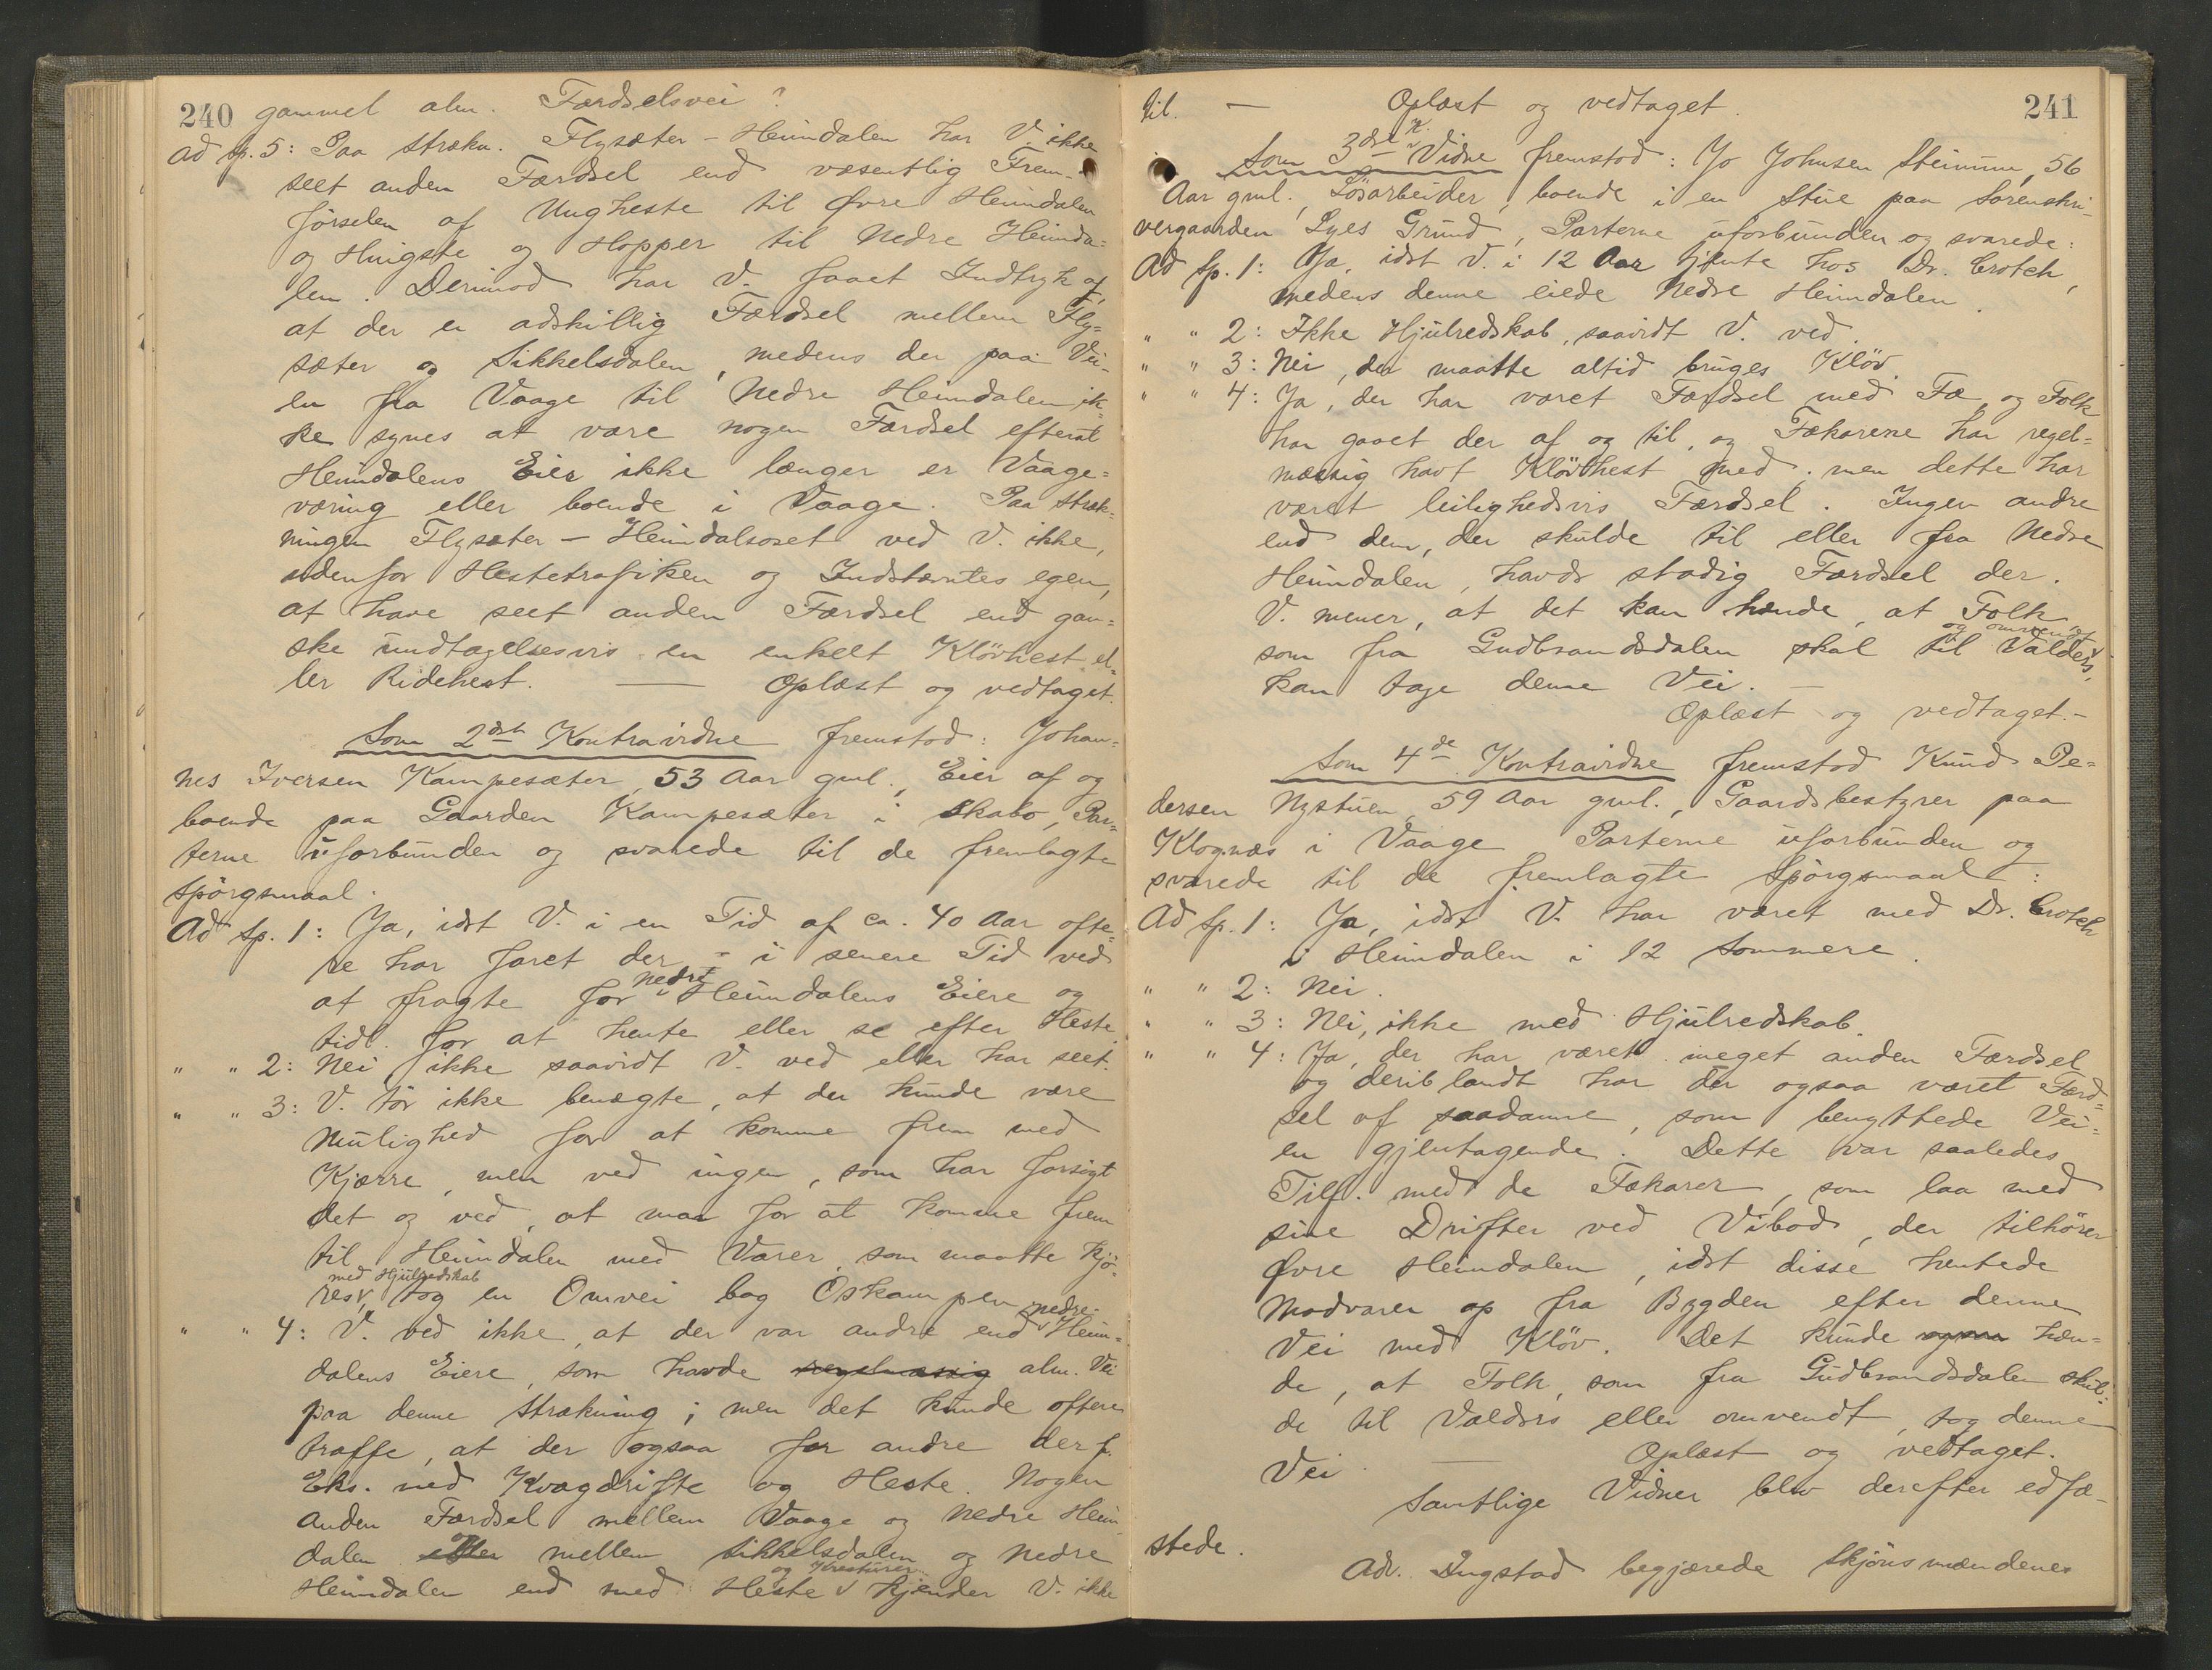 240 gammel alm. Færdselsvei?
Ad Sp. 5: Paa Strækn. Flysæter - Heimdalen har V. ikke
seet anden Færdsel end væsentlig Frem-
førselen af Ungheste til Øvre Heimdalen
og Hingste og Hopper til Nedre Heimda=
len. Derimod har V. faaet Indtryk af,
at der er adskillig Færdsel mellem Fly=
sæter og Sikkelsdalen, medens der paa Vei-
en fra Vaage til Nedre Heimdalen ik=
ke synes at være nogen Færdsel efterat
Heimdalens Eier ikke længer er Vaage=
væring eller boende i Vaage. Paa Stræk=
ningen Flysæter - Heimdalsoset ved V. ikke,
udenfor Hestetrafiken og Indstævntes egen,
at have seet anden Færdsel end gan=
ske undtagelsesvis en enkelt Kløvhest el=
ler Ridehest. — Oplæst og vedtaget.
Som 2det Kontravidne fremstod: Johan=
nes Iversen Kampesæter, 53 Aar gml., Eier af og
boende paa Gaarden Kampesæter i Skabo, Par=
terne uforbunden og svarede til de fremlagte
Spørgsmaal.
Ad Sp. 1: Ja, idet V. i en Tid af ca. 40 Aar ofte=
re har faret der - i senere Tid ved
at fragte for Nedre Heimdalens Eiere og
tidl. for at hente eller se efter Heste.
" " 2: Nei ikke saavidt V. ved eller har seet.
" " 3: V. tør ikke benægte, at der kunde være
Mulighed for at komme frem med
Kjærre, men ved ingen, som har forsøgt
det og ved, at man for at komme frem
til Heimdalen med Varer, som maatte kjø-
res med Hjulredskab, tog en Omvei bag Oskampen.
" " 4: V. ved ikke, at der var andre end Nedre Heim=
dalens Eiere, som havde regelmæssig alm. Vei
paa denne Strækning; men det kunde oftere
træffe, at der ogsaa for andre der f.
Eks. med Kvægdrifte og Heste. Nogen
anden Færdsel mellem Vaage og Nedre Heim-
dalen eller og mellem Sikkelsdalen og Nedre
Heimdalen end med Heste og Kreaturer kjender V. ikke
241
til. — Oplæst og vedtaget.
Som 3die K. Vidne fremstod: Jo Johnsen Steinum, 56
Aar gml., Løsarbeider, boende i en Stue paa Sorenskri-
vergaarden Lyes Grund, Parterne uforbunden og svarede:
Ad Sp. 1: Ja, idet V. i 12 Aar tjente hos Dr. Crotch,
medens denne eiede Nedre Heimdalen.
" " 2: Ikke Hjulredskab, saavidt V. ved.
" " 3: Nei, der maatte altid bruges Kløv.
" " 4: Ja, der har været Færdsel med Fæ, og Folk
har gaaet der af og til, og Fækarene har regel=
mæssig havt Kløvhest med; men dette har
været leilighedsvis Færdsel. Ingen andre
end dem, der skulde til eller fra Nedre
Heimdalen, havde stadig Færdsel der.
V. mener, at det kan hænde, at Folk
som fra Gudbrandsdalen skal til Valders og omvendt,
kan tage denne Vei. —
Oplæst og vedtaget.-
Som 4de Kontravidne fremstod Knud Pe=
dersen Nystuen, 59 Aar gml., Gaardsbestyrer paa
Klognæs i Vaage Parterne uforbunden og
svarede til de fremlagte Spørgsmaal:
Ad Sp. 1: Ja, idet V. har været med Dr. Crotch
i Heimdalen i 12 Sommere.
" " 2: Nei.
" " 3: Nei, ikke med Hjulredskab.
" " 4: Ja, der har været meget anden Færdsel
og deriblandt har der ogsaa været Færd=
sel af saadanne, som benyttede Vei=
en gjentagende. Dette var saaledes
Tilf. med de Fækarer, som laa med
sine Drifter ved Vibod, der tilhører
Øvre Heimdalen, idet disse hentede
Madvarer op fra Bygden efter denne
Vei med Kløv. Det kunde ogsaa hæn=
de, at Folk, som fra Gudbrandsdalen skul=
de til Valders eller omvendt, tog denne
Vei. — Oplæst og vedtaget.
Samtlige Vidner blev derefter edfæ-
stede.
Adv. Dugstad begjærede Skjønsmændenes